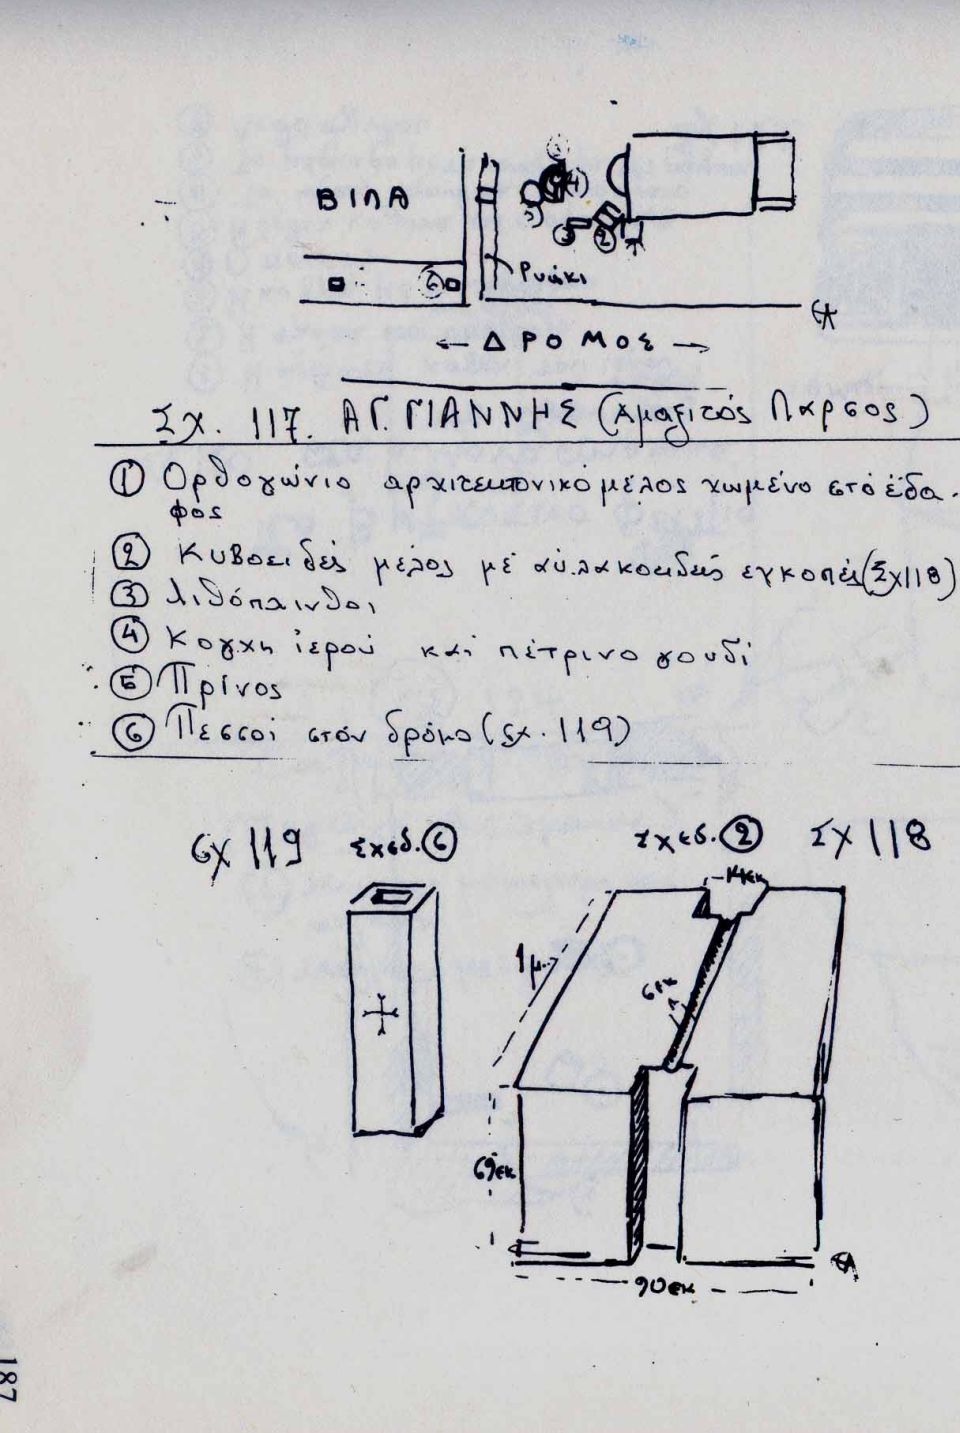 ΒΙΛΑ
5
4
3
2
1
6
Ρυάκι
← ΔΡΟΜΟΣ →
ΣΧ. 117. ΑΓ. ΓΙΑΝΝΗΣ (Αμαξιτός Λάρσος)
① Ορθογώνιο αρχιτεκτονικό μέλος χωμένο στό έδα-
φος
② Κυβοειδές μέλος μέ αύλακοειδείς εγκοπές (Σχ 118)
③ Λιθόπλινθοι
④ Κόγχη ἱερού καί πέτρινο γουδί
⑤ Πρίνος
⑥ Πεσσοί στόν δρόμο (σχ. 119)
σχ 119 Σχεδ. ⑥
Σχεδ. ② Σχ 118
14εκ
1μ.
6εκ
69εκ
90εκ
187